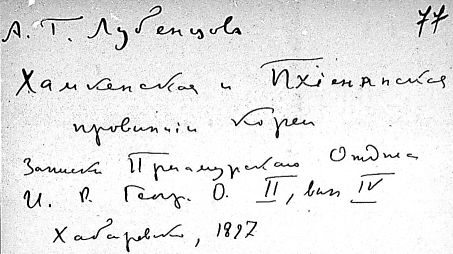 А. Т. Лубенцовъ 77
Хамкенская и Пхіенанская
провинціи Кореи
Записки Приамурскаго Отдѣла
И. Р. Геогр. О. II, вып IV
Хабаровскъ, 1897